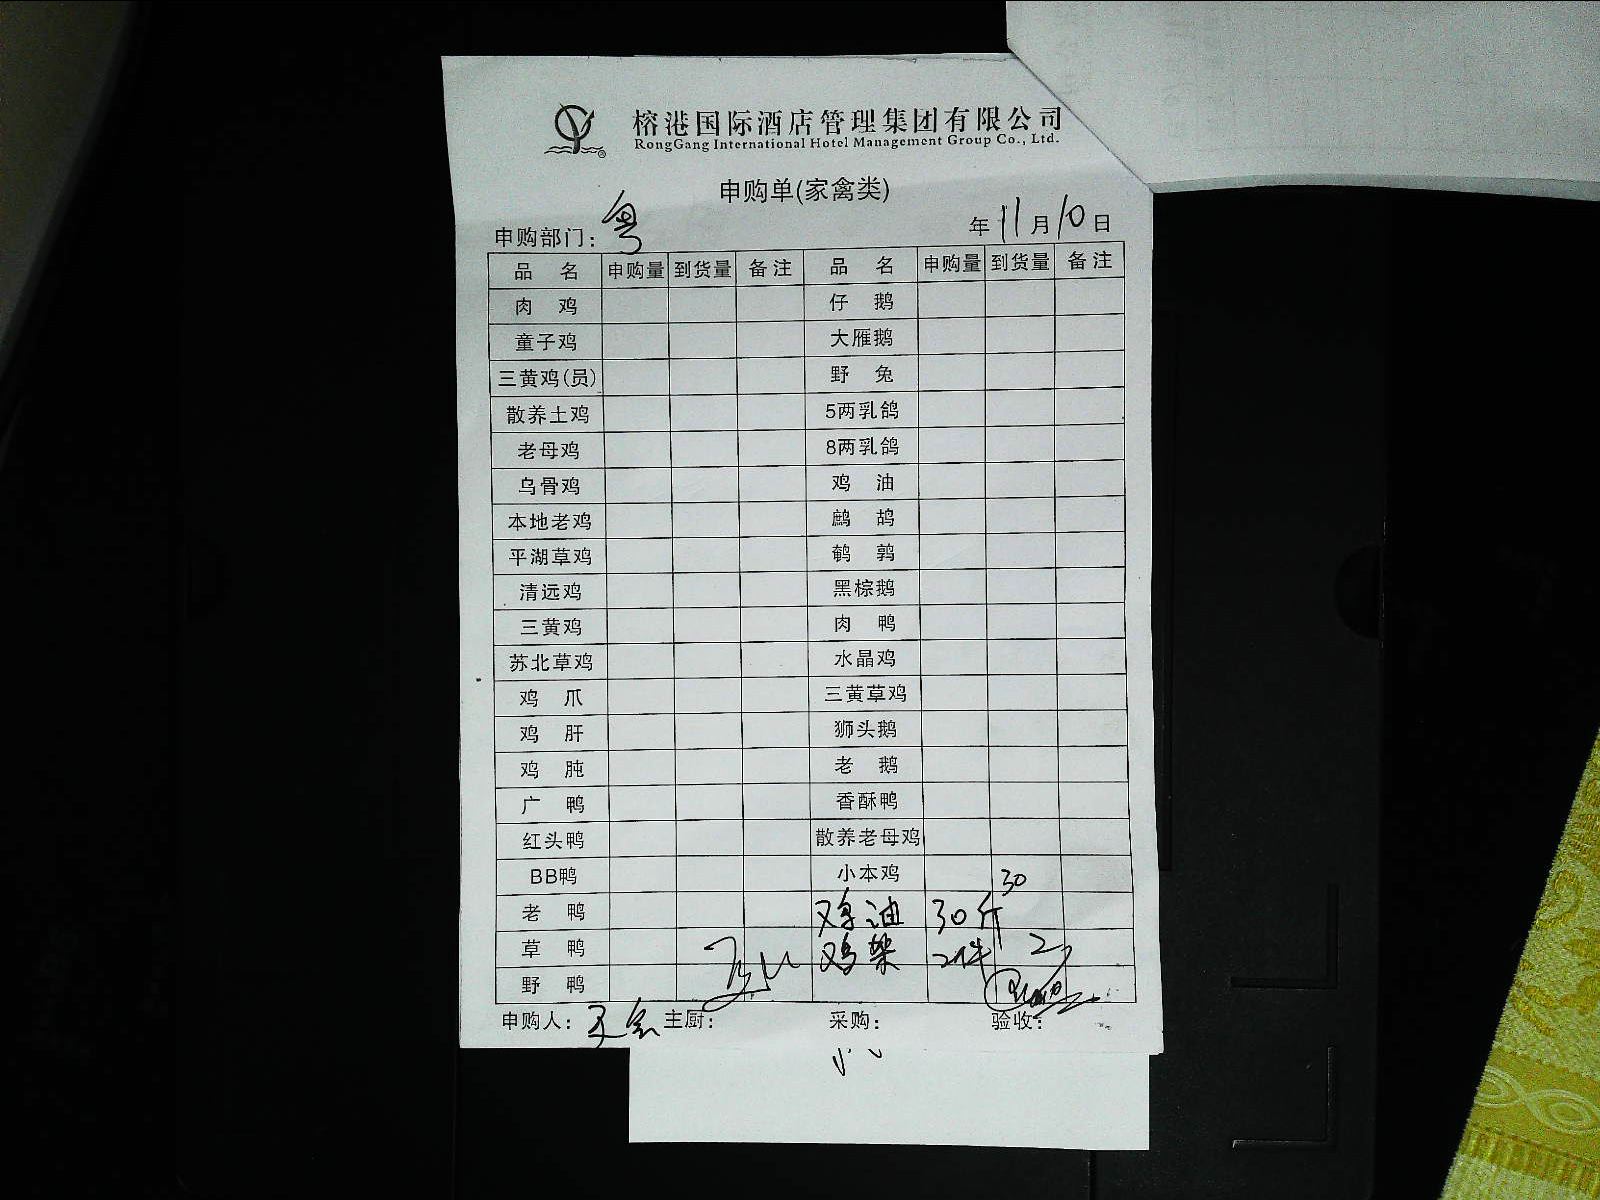 榕港国际酒店管理集团有限公司
RongGang International Hotel Management Group Co., Ltd.
申购单(家禽类)
申购部门: 粤 年 11 月 10 日
品 名 申购量 到货量 备注 品 名 申购量 到货量 备注
肉 鸡 仔 鹅
童子鸡 大雁鹅
三黄鸡(员) 野 兔
散养土鸡 5两乳鸽
老母鸡 8两乳鸽
乌骨鸡 鸡 油
本地老鸡 鹧 鸪
平湖草鸡 鹌 鹑
清远鸡 黑棕鹅
三黄鸡 肉 鸭
苏北草鸡 水晶鸡
鸡 爪 三黄草鸡
鸡 肝 狮头鹅
鸡 肫 老 鹅
广 鸭 香酥鸭
红头鸭 散养老母鸡
BB鸭 小本鸡
老 鸭 鸡油 30斤 30
草 鸭 鸡架 2件 2
野 鸭
申购人: 主厨: 采购: 验收: